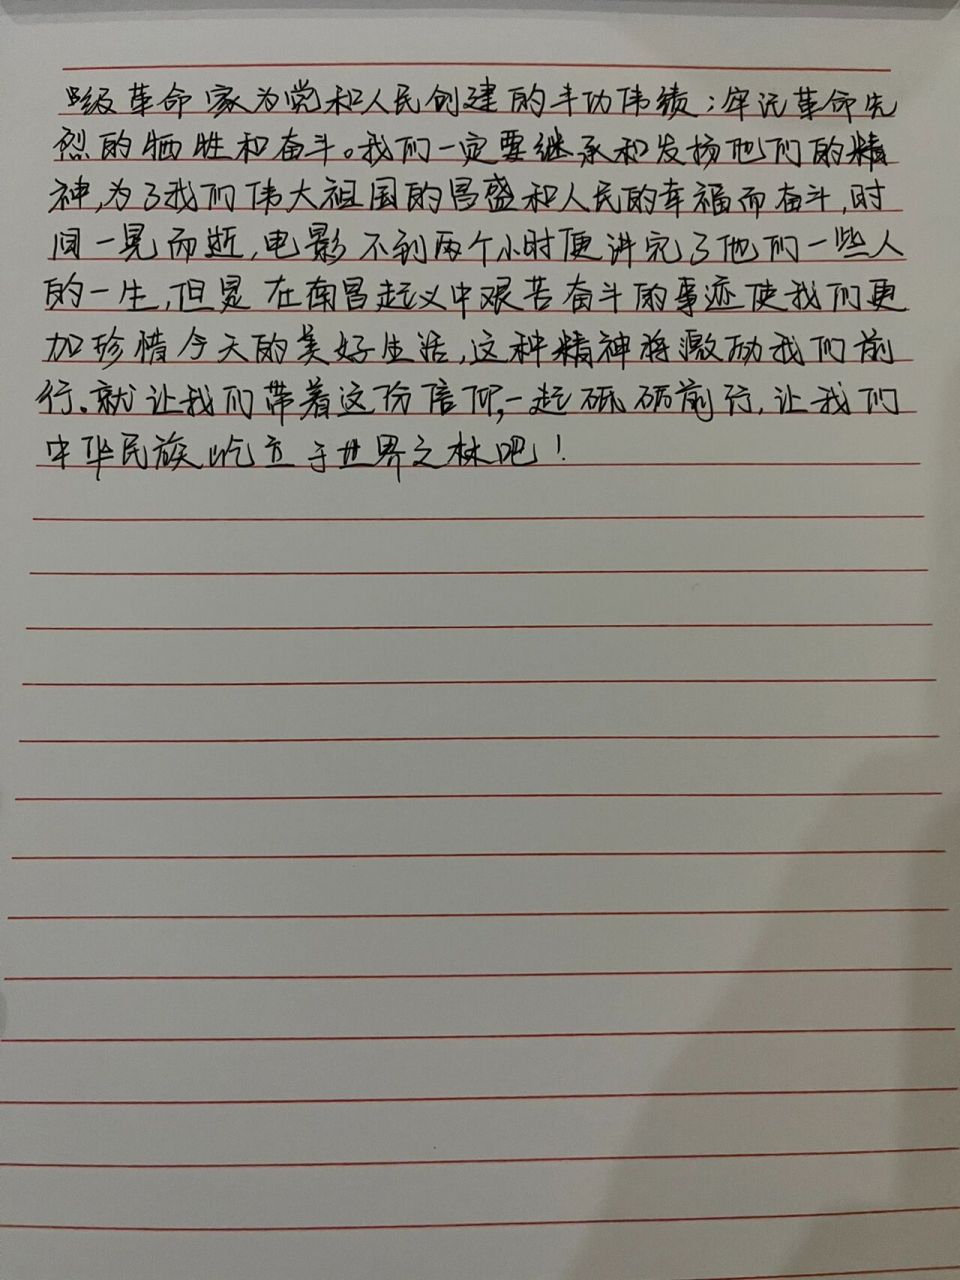 级革命家为党和人民创建的丰功伟绩；牢记革命先
烈的牺牲和奋斗。我们一定要继承和发扬他们的精
神,为了我们伟大祖国的昌盛和人民的幸福而奋斗,时
间一晃而逝,电影不到两个小时便讲完了他们一些人
的一生,但是在南昌起义中艰苦奋斗的事迹使我们更
加珍惜今天的美好生活,这种精神将激励我们前
行、就让我们带着这份信仰,一起砥砺前行,让我们
中华民族屹立于世界之林吧！